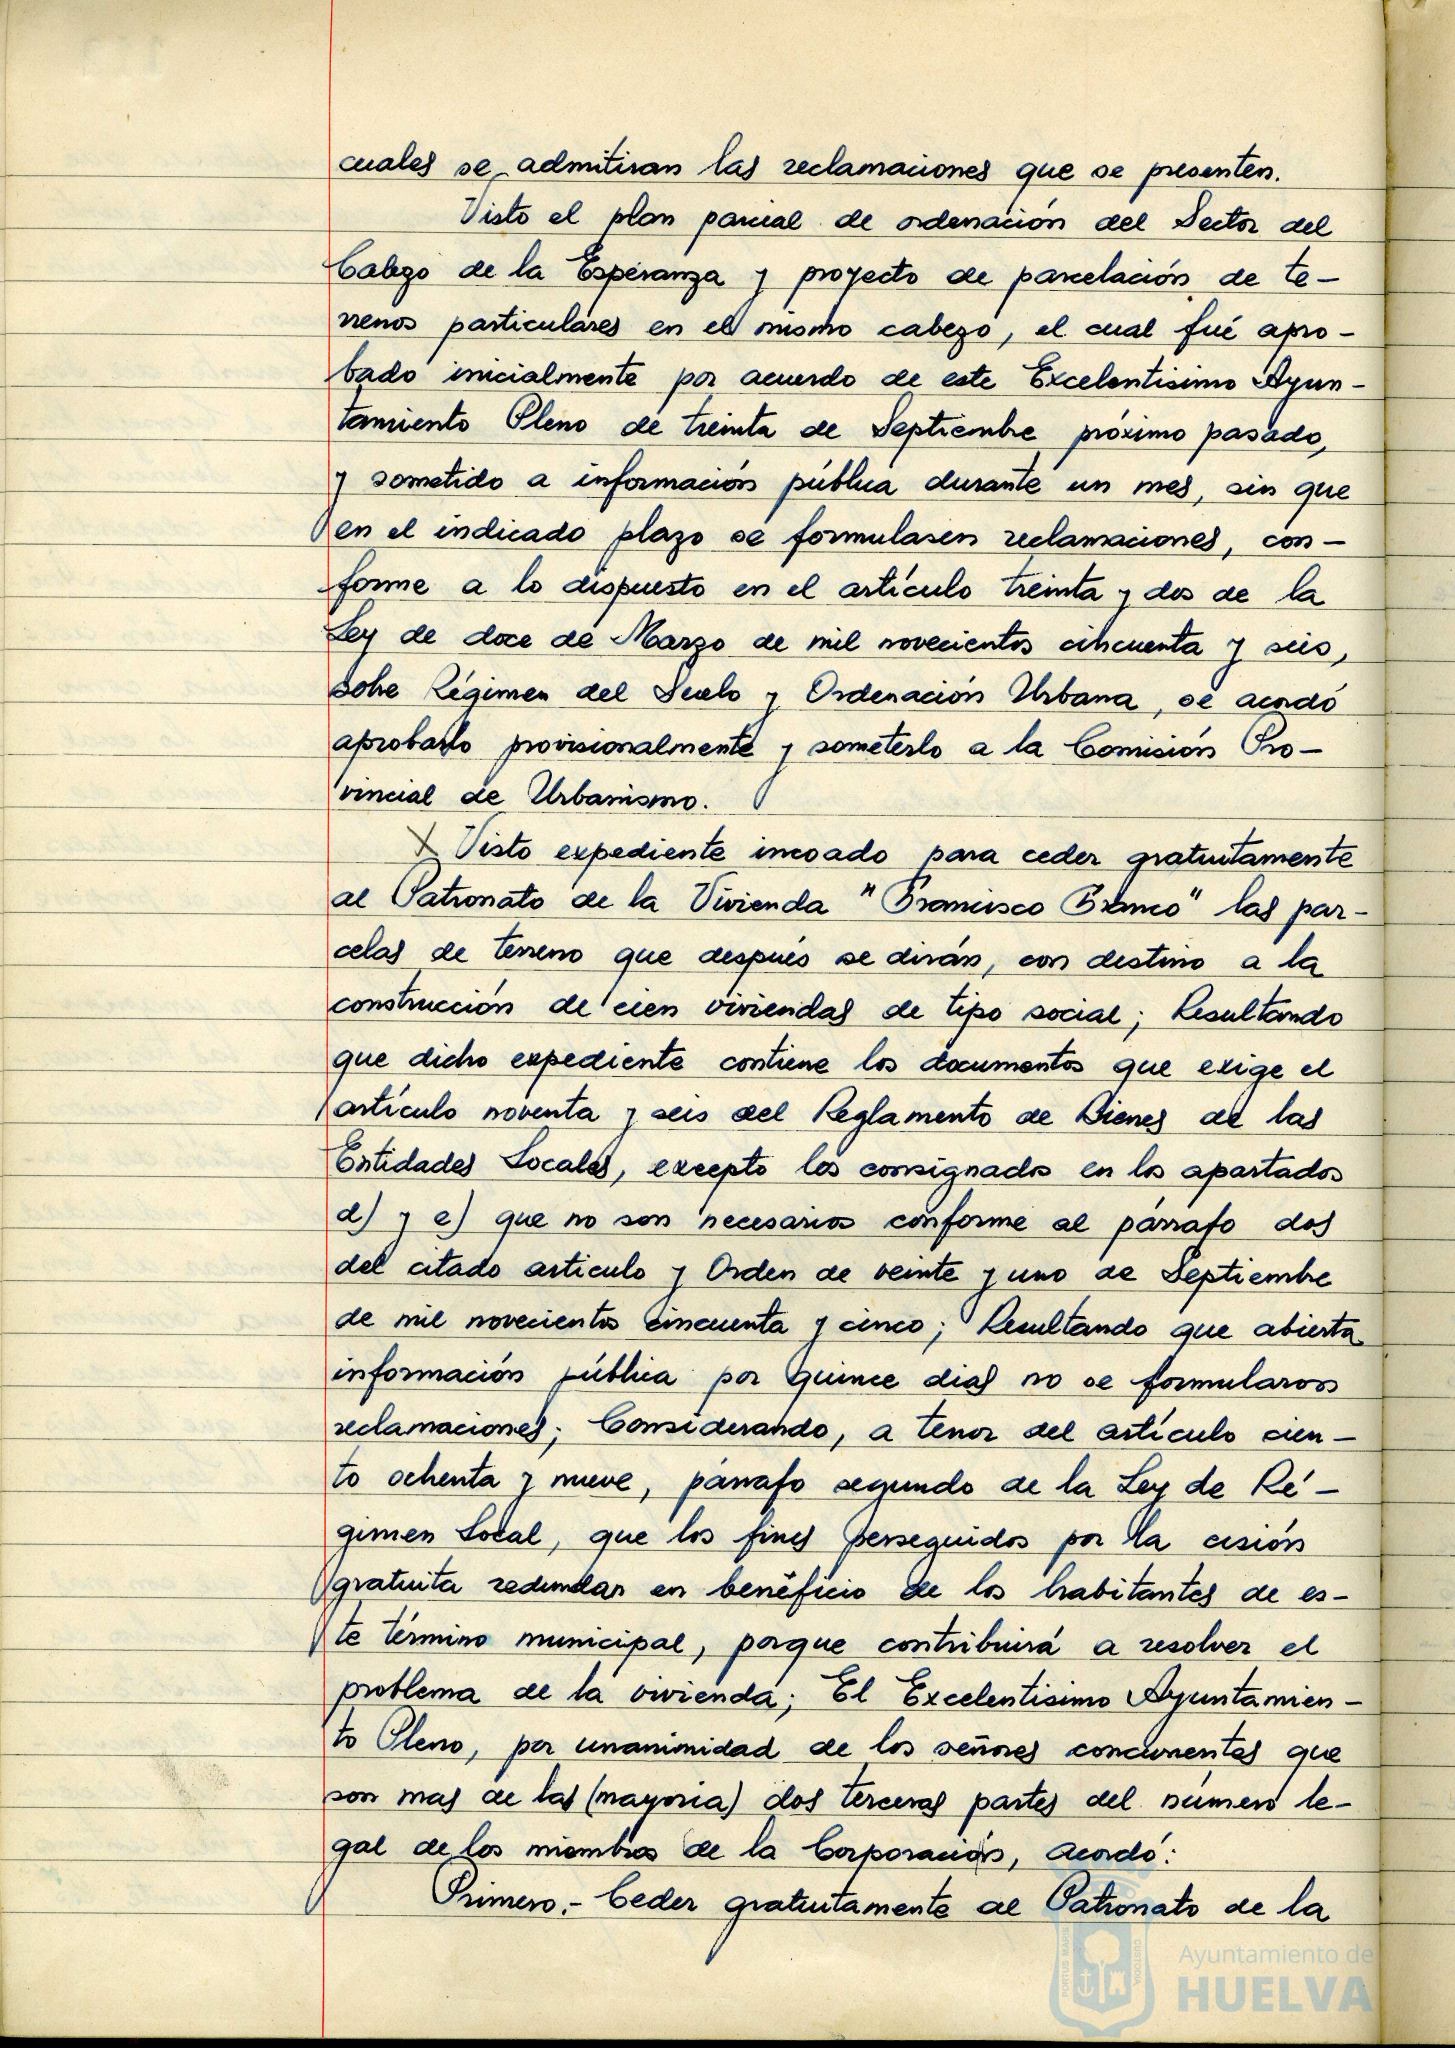 cuales se admitiran las reclamaciones que se presenten.
Visto el plan parcial de ordenación del Sector del
Cabezo de la Esperanza y proyecto de parcelación de te-
rrenos particulares en el mismo cabezo, el cual fué apro-
bado inicialmente por acuerdo de este Excelentisimo Ayun-
tamiento Pleno de treinta de Septiembre próximo pasado,
y sometido a información pública durante un mes, sin que
en el indicado plazo se formulasen reclamaciones, con-
forme a lo dispuesto en el artículo treinta y dos de la
Ley de doce de Marzo de mil novecientos cincuenta y seis,
sobre Régimen del Suelo y Ordenación Urbana, se acordó
aprobarlo provisionalmente y someterlo a la Comisión Pro-
vincial de Urbanismo.
X Visto expediente incoado para ceder gratuitamente
al Patronato de la Vivienda "Francisco Franco" las par-
celas de terreno que después se dirán, con destino a la
construcción de cien viviendas de tipo social; Resultando
que dicho expediente contiene los documentos que exige el
artículo noventa y seis del Reglamento de Bienes de las
Entidades Locales, excepto los consignados en los apartados
d) y e) que no son necesarios conforme al párrafo dos
del citado articulo y Orden de veinte y uno de Septiembre
de mil novecientos cincuenta y cinco; Resultando que abierta
información pública por quince dias no se formularon
reclamaciones; Considerando, a tenor del artículo cien-
to ochenta y nueve, párrafo segundo de la Ley de Ré-
gimen Local, que los fines perseguidos por la cesión
gratuita redundan en beneficio de los habitantes de es-
te término municipal, porque contribuirá a resolver el
problema de la vivienda; El Excelentisimo Ayuntamien-
to Pleno, por unanimidad de los señores concurrentes que
son mas de las (mayoria) dos terceras partes del número le-
gal de los miembros de la Corporación, acordó:
Primero.- Ceder gratuitamente al Patronato de la
PORTUS MARIS CUSTODIA
Ayuntamiento de
HUELVA